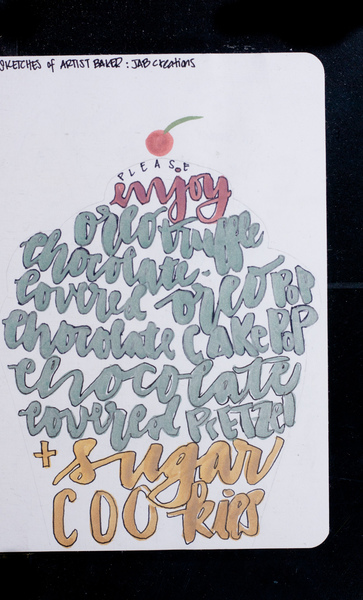 SKETCHES of ARTIST BAKER: JAB Creations
PLEASE
enjoy
oreo truffle
chocolate-
covered oreo POP
chocolate CAKEPOP
chocolate
covered PRETZEL
+ sugar
COOkies